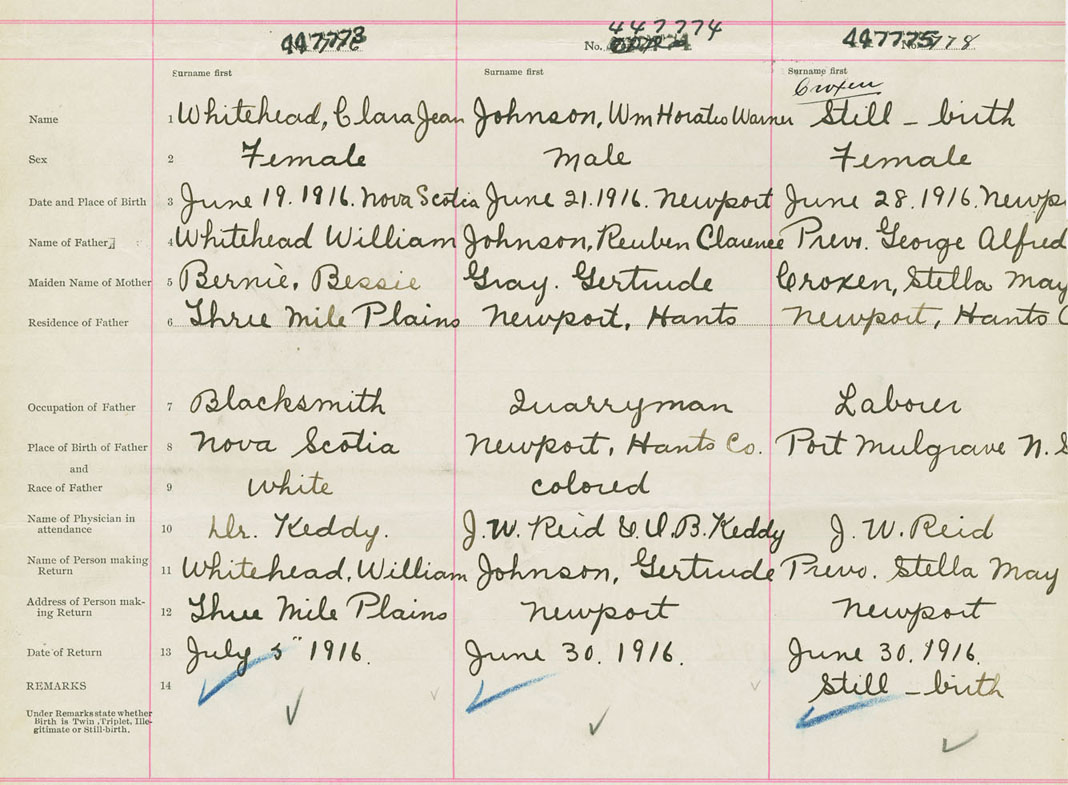 447773 447774 447775
No. No. 778
Surname first Surname first Surname first
Croxen
Name 1 Whitehead, Clara Jean Johnson, Wm Horatio Warner Still - birth
Sex 2 Female Male Female
Date and Place of Birth 3 June 19. 1916. Nova Scotia June 21. 1916. Newport June 28. 1916. Newp
Name of Father 4 Whitehead William Johnson, Reuben Clarence Prevo. George Alfred
Maiden Name of Mother 5 Bernie, Bessie Gray. Gertrude Croxen, Stella May
Residence of Father 6 Three Mile Plains Newport, Hants Newport, Hants C
Occupation of Father 7 Blacksmith Quarryman Laborer
Place of Birth of Father 8 Nova Scotia Newport, Hants Co. Port Mulgrave N. S
and
Race of Father 9 White colored
Name of Physician in
attendance 10 Dr. Keddy. J. W. Reid & O. B. Keddy J. W. Reid
Name of Person making
Return 11 Whitehead, William Johnson, Gertrude Prevo. Stella May
Address of Person mak-
ing Return 12 Three Mile Plains Newport Newport
Date of Return 13 July 5" 1916. June 30. 1916. June 30. 1916.
REMARKS 14 Still - birth
Under Remarks state whether
Birth is Twin, Triplet, Ille-
gitimate or Still-birth.